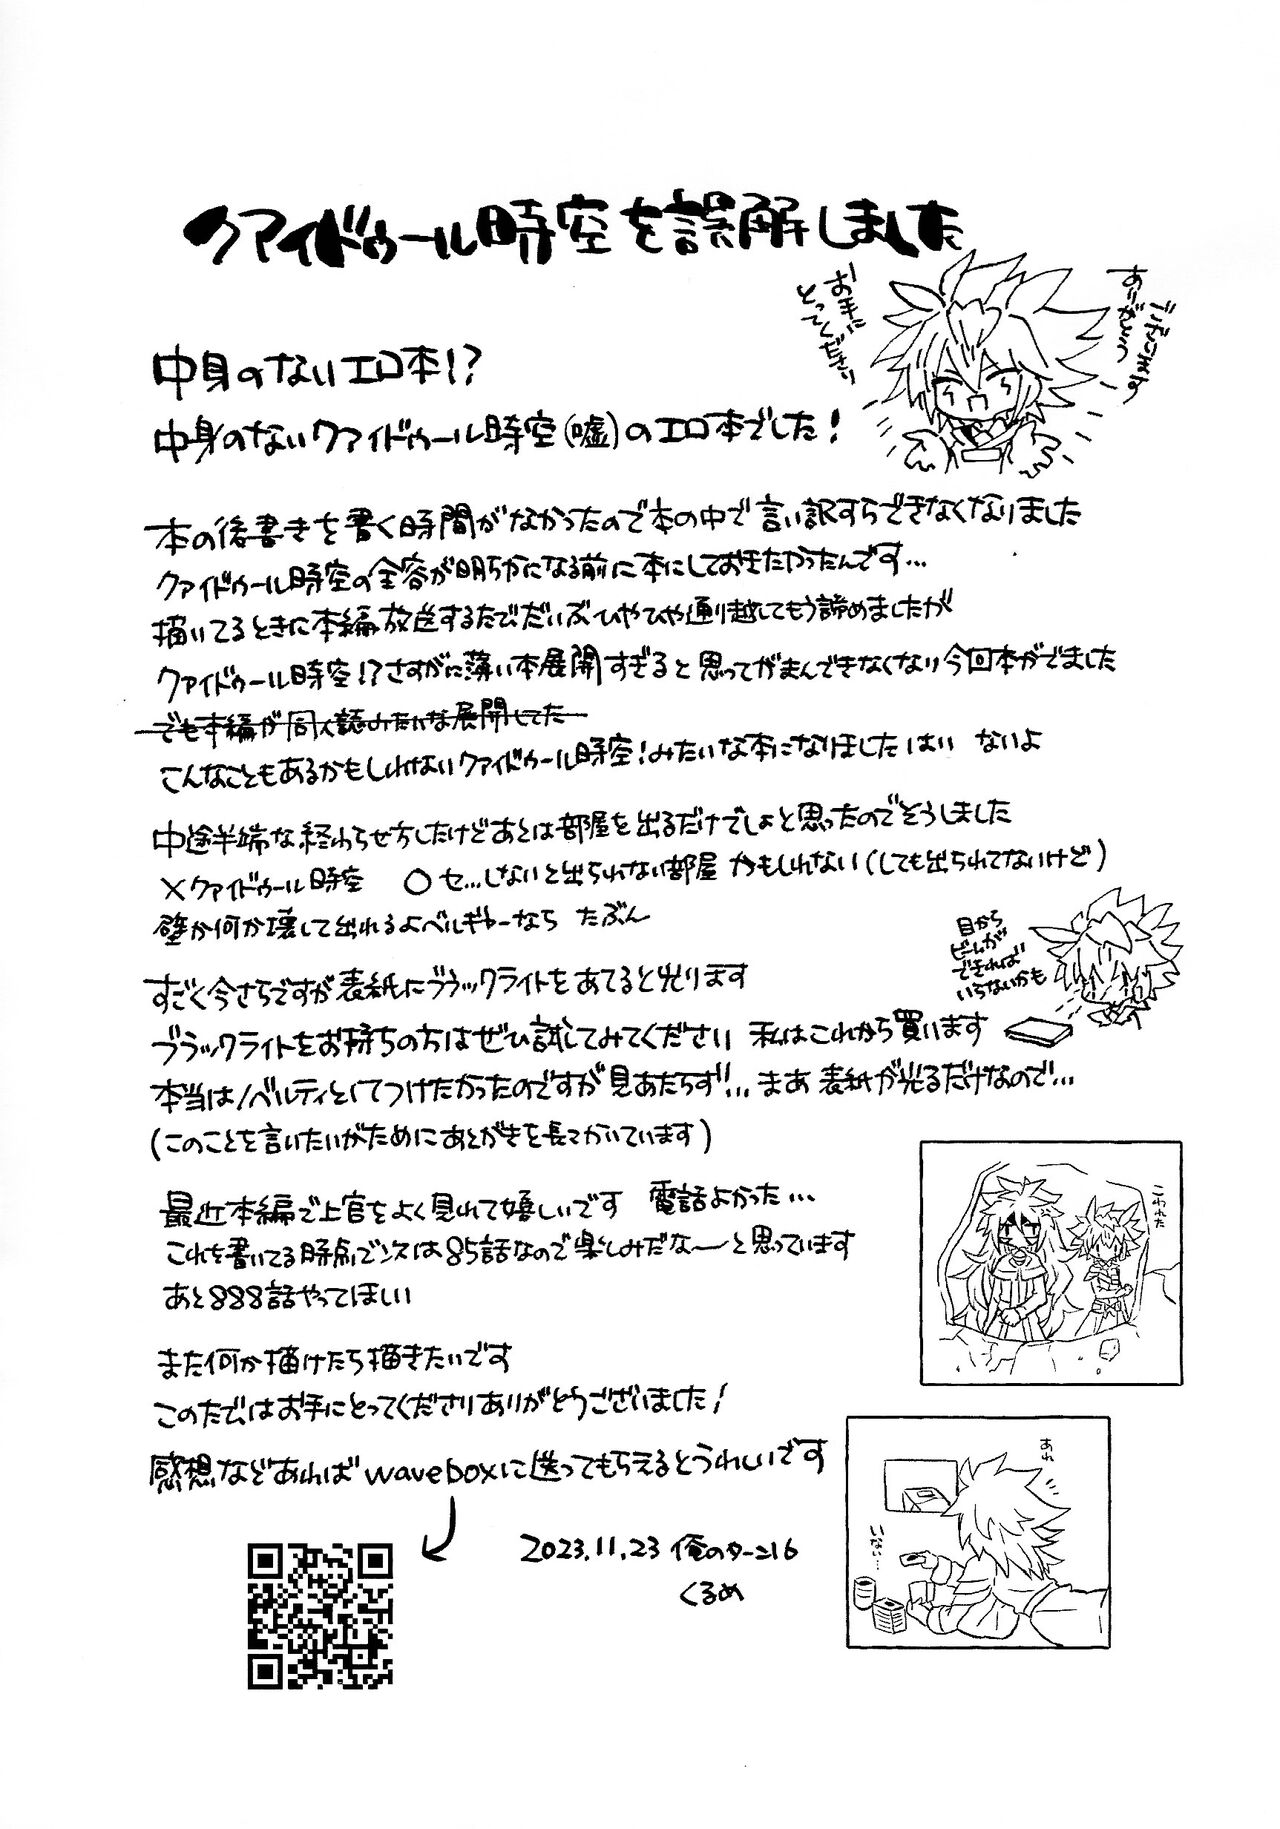 クァイドゥール時空を誤解しました
お手に
とってくださり
ありがとう
ございます
中身のないエロ本!?
中身のないクァイドゥール時空(嘘)のエロ本でした!
本の後書きを書く時間がなかったので本の中で言い訳すらできなくなりました
クァイドゥール時空の全容が明らかになる前に本にしておきたかったんです…
描いてるときに本編放送するたびだいぶひやひや通り越してもう諦めましたが
クァイドゥール時空!?さすがに薄い本展開すぎると思ってがまんできなくなり今回本がでました
でも本編が同人誌みたいな展開してた
こんなこともあるかもしれないクァイドゥール時空!みたいな本になりましたはい ないよ
中途半端な終わらせ方したけどあとは部屋を出るだけでしょと思ったのでそうしました
×クァイドゥール時空 ○セ…しないと出られない部屋 かもしれない(しても出られてないけど)
壁か何か壊して出れるよベルギャーなら たぶん
目から
ビームが
できれば
いらないかも
すごく今さらですが表紙にブラックライトをあてると光ります
ブラックライトをお持ちの方はぜひ試してみてください 私はこれから買います
本当はノベルティとしてつけたかったのですが見あたらず!…まあ表紙が光るだけなので…
(このことを言いたいがためにあとがきを長々かいています)
こわれた
最近本編で上官をよく見れて嬉しいです 電話よかった…
これを書いてる時点でソスは85話なので楽しみだな〜と思っています
あと888話やってほしい
また何か描けたら描きたいです
このたびはお手にとってくださりありがとうございました!
感想などあればwaveboxに送ってもらえるとうれしいです
あれ
いない…
2023.11.23 俺のターン16
くるめ